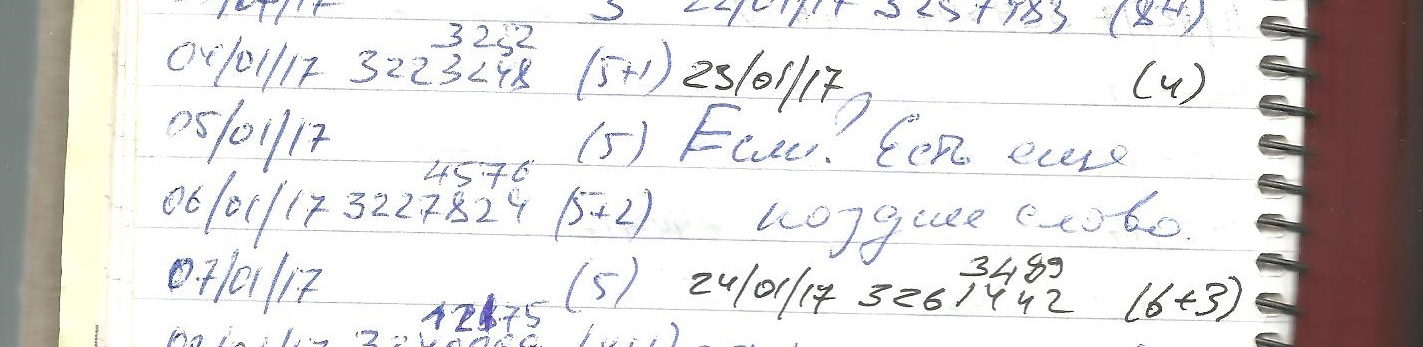 22/01/17 3257483 (8+1)
3252
04/01/17 3223248 (5+1) 23/01/17 (4)
05/01/17 (5) Если? Есть еще
4576
06/01/17 3227824 (5+2) поздше слово.
3489
07/01/17 (5) 24/01/17 3261442 (6+3)
12175